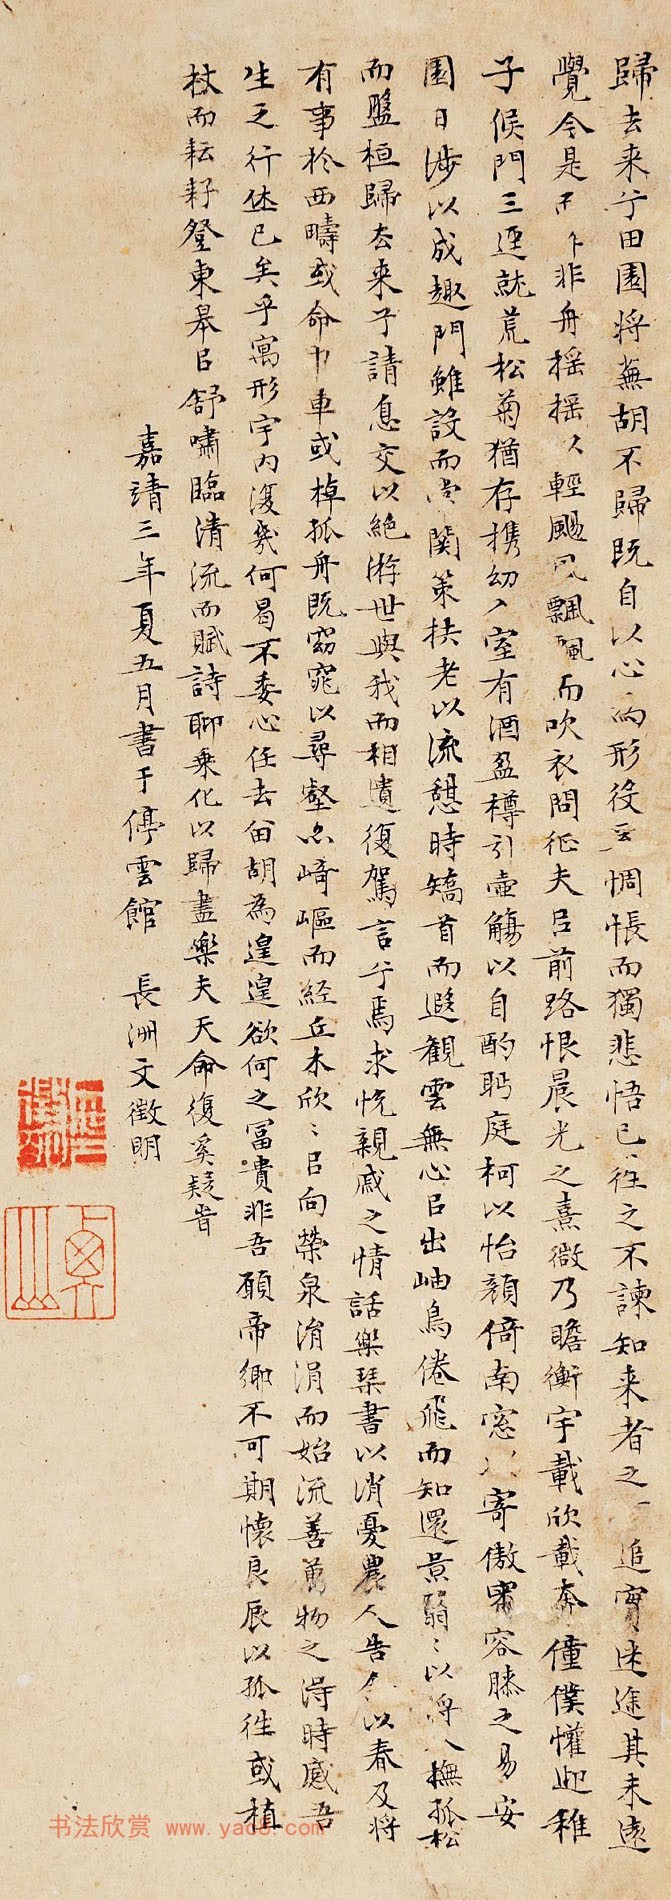 歸去来兮田園將蕪胡不歸既自以心為形役奚惆悵而獨悲悟已往之不諫知来者之追實迷途其未遠
覺今是而昨非舟摇摇以輕颺風飄飄而吹衣問征夫㠯前路恨晨光之熹微乃瞻衡宇載欣載奔僮僕懽迎稚
子候門三逕就荒松菊猶存携幼入室有酒盈樽引壺觴以自酌眄庭柯以怡顏倚南窓以寄傲審容膝之易安
園日涉以成趣門雖設而常關策扶老以流憩時矯首而遐觀雲無心㠯出岫鳥倦飛而知還景翳〻以將入撫孤松
而盤桓歸去来兮請息交以絶游世與我而相遺復駕言兮焉求悦親戚之情話樂琴書以消憂農人告余以春及將
有事於西疇或命巾車或棹孤舟既窈窕以尋壑亦崎嶇而經丘木欣〻㠯向榮泉涓涓而始流善萬物之得時感吾
生之行休已矣乎寓形宇内復幾何曷不委心任去留胡為遑遑欲何之冨貴非吾願帝鄉不可期懷良辰以孤往或植
杖而耘耔登東皋㠯舒嘯臨清流而賦詩聊乗化以歸盡樂夫天命復奚疑旹
嘉靖三年夏五月書于停雲館 長洲文徵明
书法欣赏 www.yac8.com